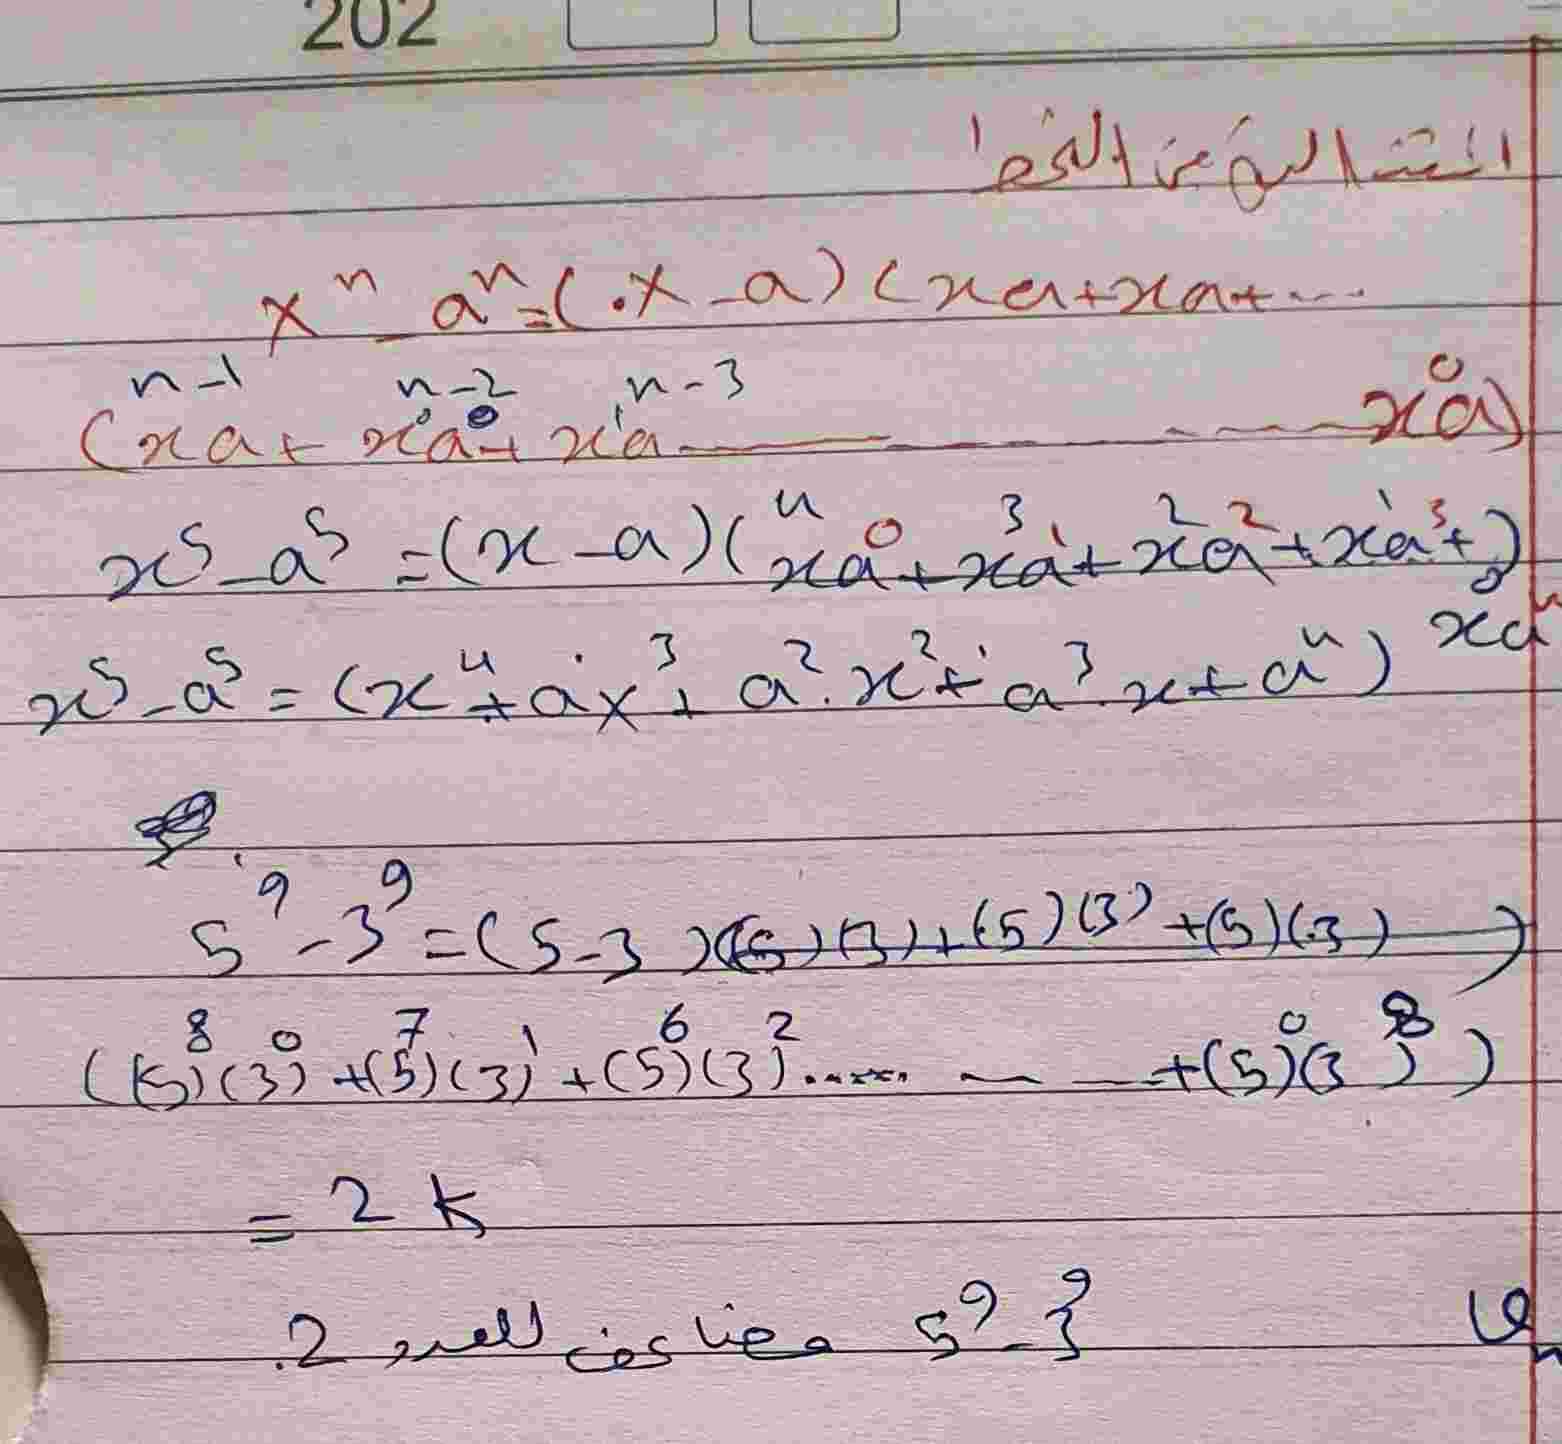 202
xⁿ - aⁿ = (x - a) (xa + xa + ...
(xⁿ⁻¹a + xⁿ⁻²a⁰ + xⁿ⁻³a¹ ——— - - - x⁰a)
x⁵ - a⁵ = (x - a) (x⁴a⁰ + x³a¹ + x²a² + x¹a³ + )
x⁰a⁴
x⁵ - a⁵ = (x⁴ + ax³ + a².x² + a³.x + a⁴)
5⁹ - 3⁹ = (5 - 3)((5)(3) + (5)(3) + (5)(3) )
((5)⁸(3)⁰ + (5)⁷(3)¹ + (5)⁶(3)² ..... - - + (5)⁰(3)⁸)
= 2 k
5⁹ - 3⁹ مضاعف للعدد 2.